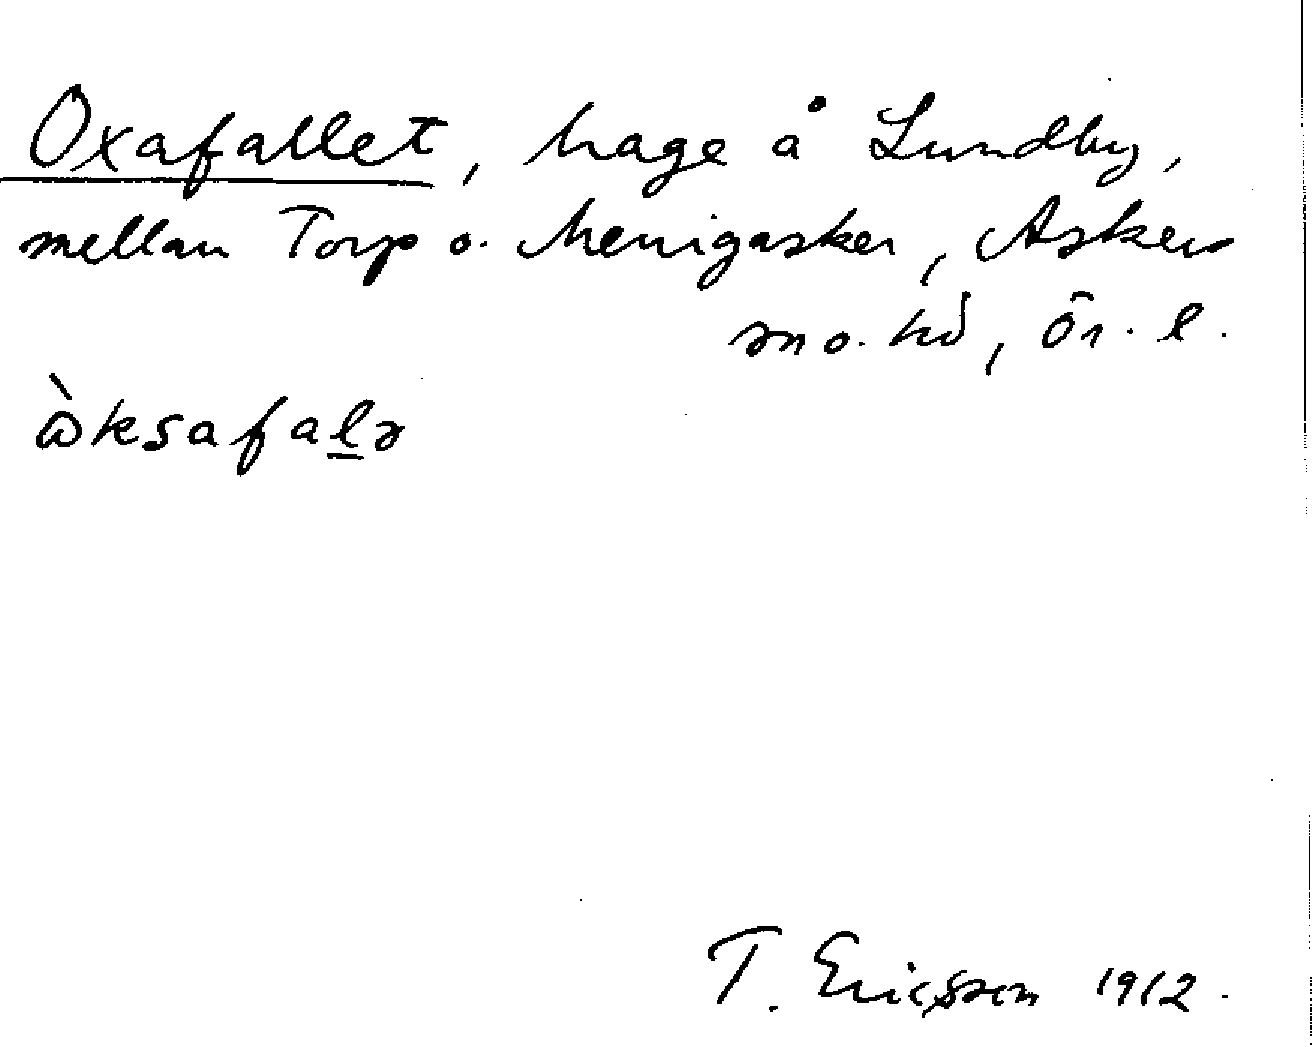 Oxafallet, hage å Lundby,
mellan Torp o. Menigasker, Askers
sn o. hd, Ör. l.
T. Ericsson 1912.